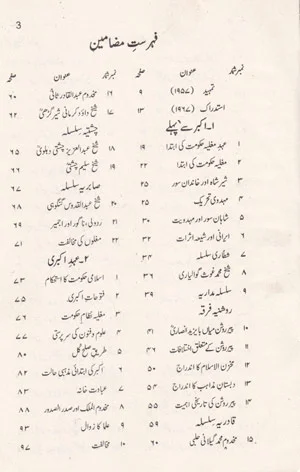 3
فہرستِ مضامین
نمبر شمار عنوان صفحہ
تمہید (۱۹۵۷) ۹
استدراک (۱۹۶۷) ۱۳
۱۔ اکبر سے پہلے
۱ عہدِ مغلیہ حکومت کی ابتدا ۱۹
۲ مغلیہ حکومت کی ابتدا ۲۲
۳ شیر شاہ اور خاندانِ سور ۲۵
۴ مہدوی تحریک ۲۵
۵ شاہانِ سور اور مہدویت ۳۰
۶ ایرانی اور شیعہ اثرات ۳۲
۷ شطاری سلسلہ
۸ شیخ محمد غوث گوالیاری ۳۶
۹ سلسلہ مداریہ ۳۹
روشنیہ فرقہ
۱۰ پیر روشن میاں بایزید انصاری ۴۱
۱۱ پیر روشن کے متعلق اختلافات ۴۶
۱۲ مخزن الاسلام کا اندراج ۵۰
۱۳ دبستانِ مذاہب کا اندراج ۵۴
۱۴ پیر روشن کی تاریخی اہمیت ۵۵
قادریہ سلسلہ ۵۹
۱۵ مخدوم محمد گیلانی حلبی ۶۰
نمبر شمار عنوان صفحہ
۱۶ مخدوم عبدالقادر ثانی ۶۰
۱۷ شیخ داؤد کرمانی شیر گڑھی ۶۲
چشتیہ سلسلہ
۱۸ شیخ عبدالعزیز چشتی دہلوی ۶۵
۱۹ شیخ سلیم چشتی ۶۶
صابریہ سلسلہ ۶۷
۲۰ شیخ عبدالقدوس گنگوہی ۶۸
۲۱ ردولی، ناگور اور اجمیر ۶۹
۲۲ مغلوں کی مخالفت ۷۱
۲۔ عہدِ اکبری
۱ اسلامی حکومت کا استحکام ۷۳
۲ فتوحاتِ اکبری ۷۵
۳ مغلیہ نظامِ حکومت ۷۶
۴ علوم و فنون کی سرپرستی ۷۷
۵ طریقِ صلح کل ۸۰
۶ اکبر کی ابتدائی مذہبی حالت ۸۲
۷ عبادت خانہ ۸۳
۸ مخدوم الملک اور صدر الصدور ۸۸
۹ علما کا زوال ۹۳
۱۰ مخالفت ۹۷